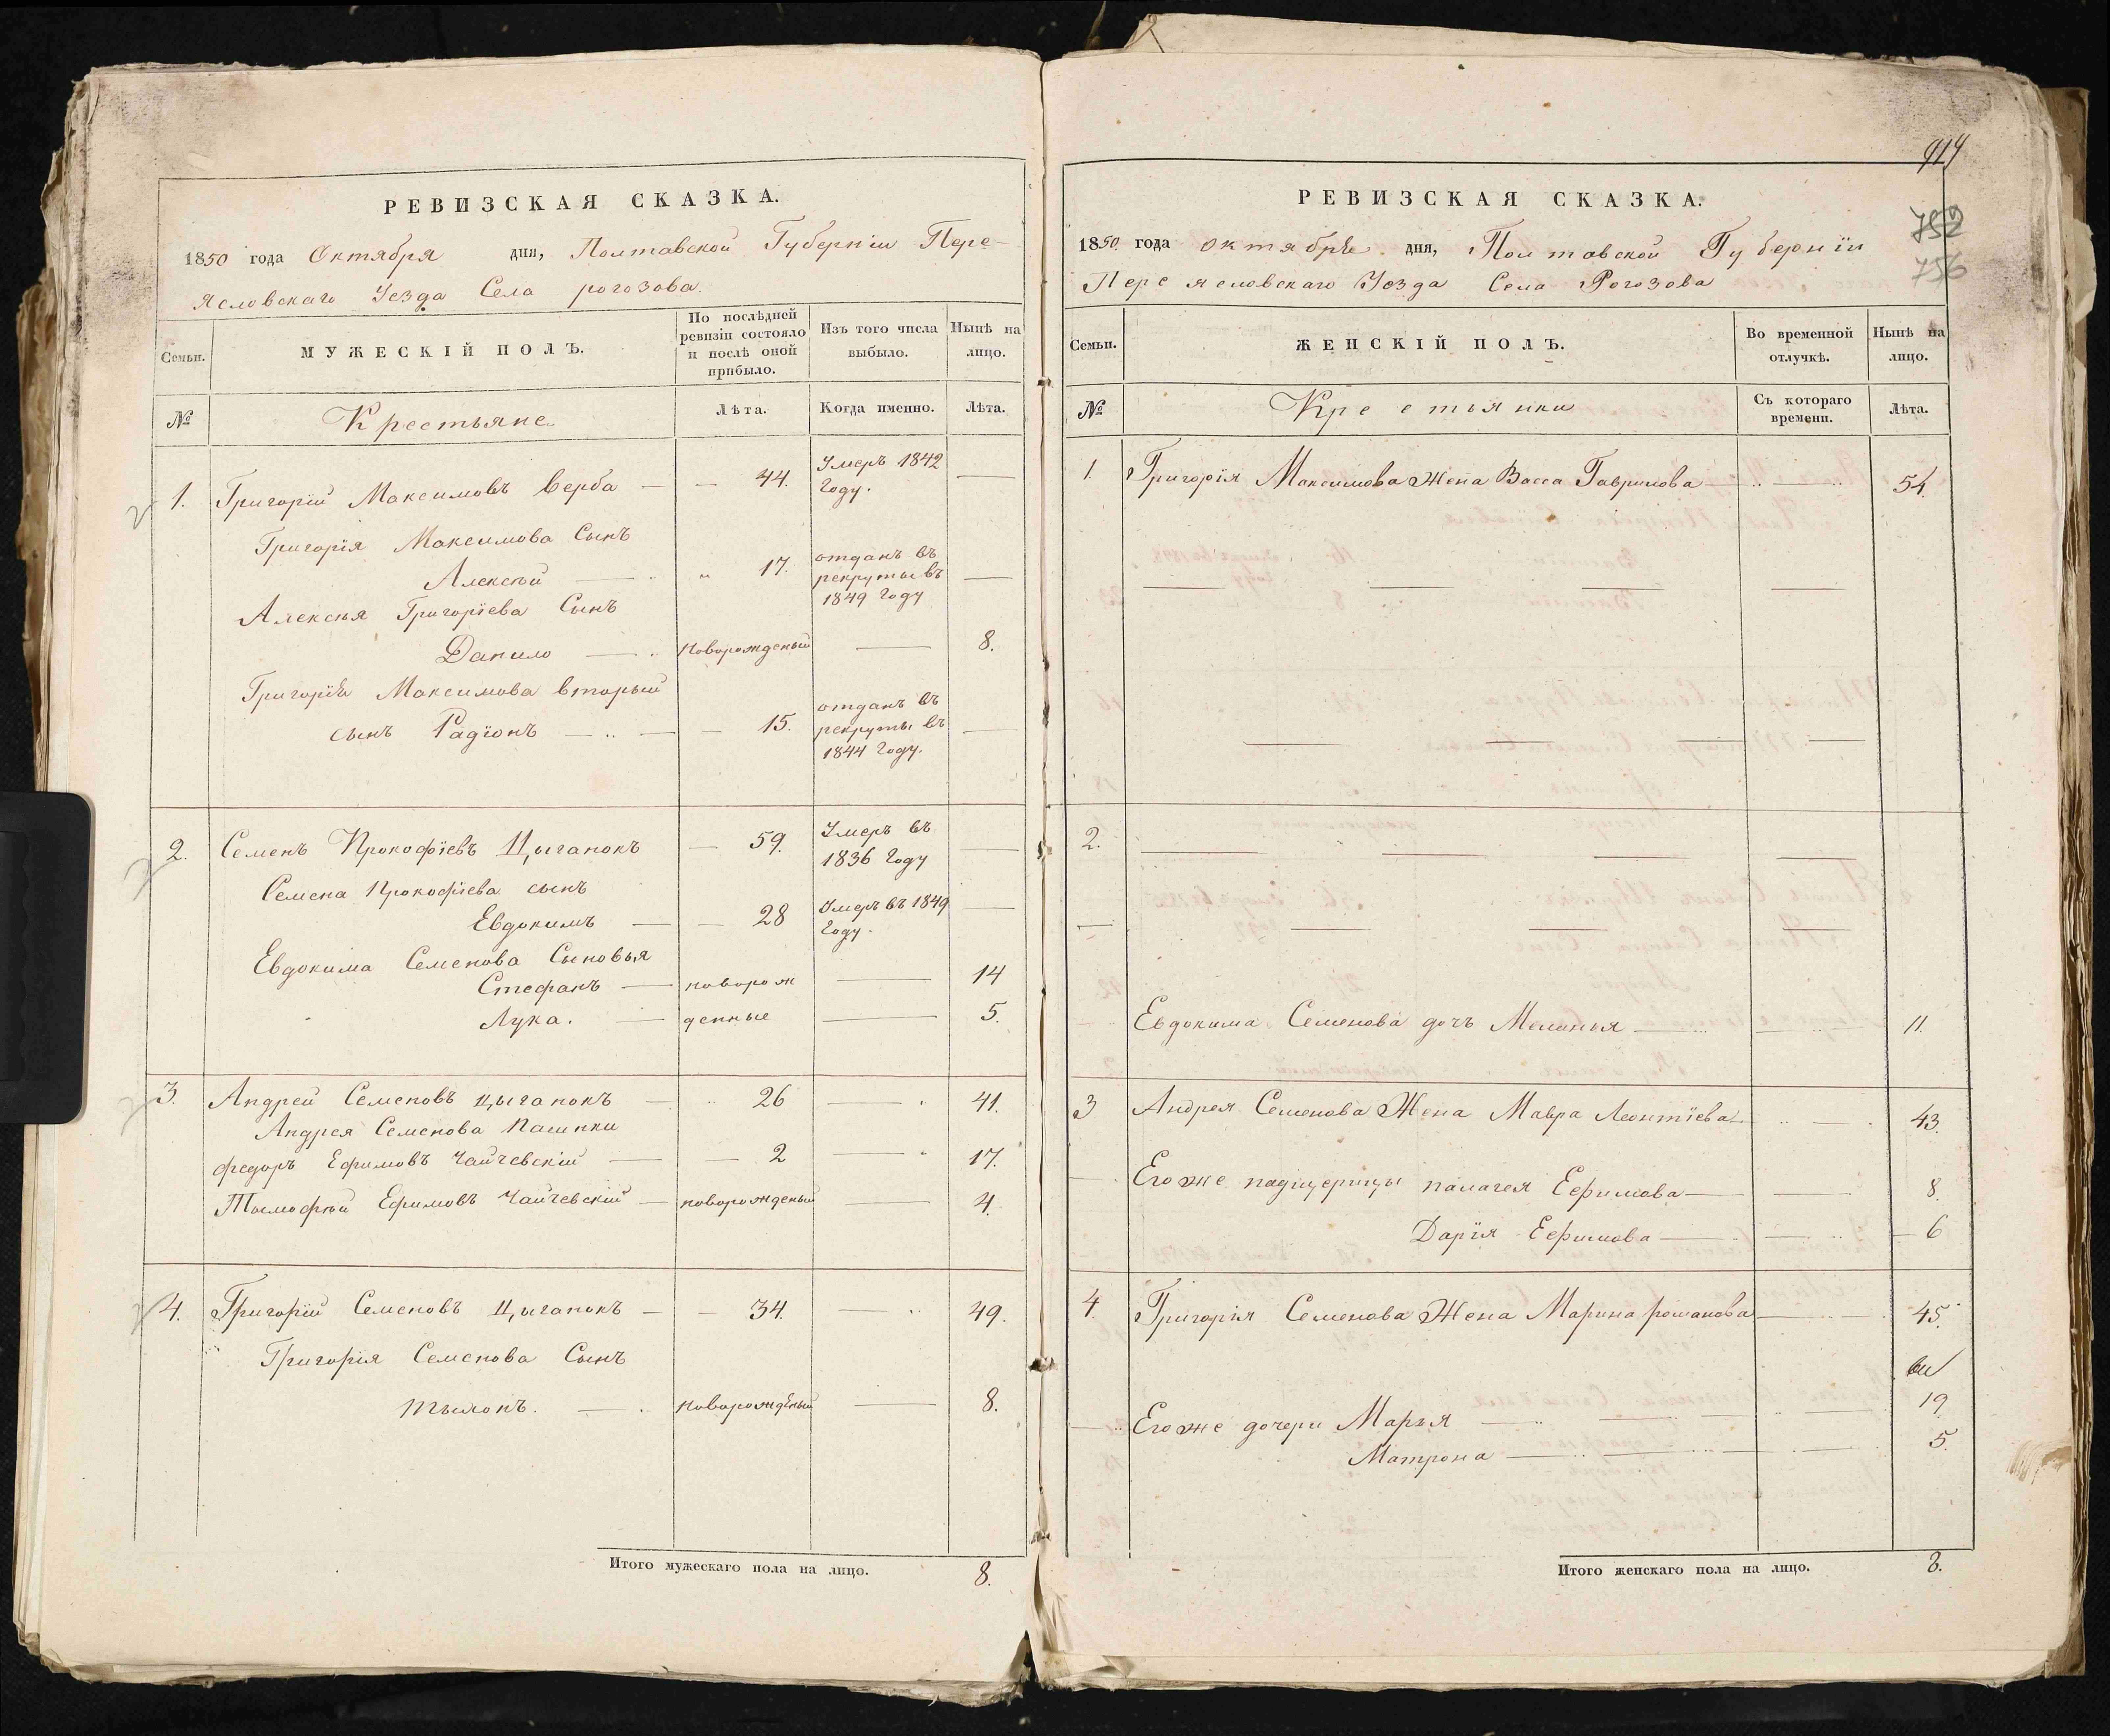 РЕВИЗСКАЯ СКАЗКА.
1850 года Октября дня, Полтавской Губернїи Пере-
яеловскаго Уезда Села рогозова.
Семьи.
МУЖЕСКІЙ ПОЛЪ.
По послѣдней ревизіи состояло и послѣ оной прибыло.
Изъ того числа выбыло.
Нынѣ на лицо.
№
Крестьяне
Лѣта.
Когда именно.
Лѣта.
1. Григорїй Максимовъ верба — — 44. Умеръ 1842 Году. —
Григорїя Максимова Сынъ
Алексѣй — 17. отданъ въ рекруты въ 1849 Году —
Алексѣя Григорїева Сынъ
Данило — новорожденый — 8.
Григорїя Максимова вторый
сынъ Радїонъ — 15. отданъ въ рекруты въ 1844 Году. —
2. Семенъ Прокофїевъ Цыганокъ — 59. Умеръ въ 1836 Году —
Семена Прокофїева сынъ
Евдокимъ — 28 Умеръ въ 1849 Году. —
Евдокима Семенова Сыновья
Стефанъ — новорож — 14
Лука. — денные — 5.
3. Андрей Семеновъ цыганокъ — 26 — 41.
Андрея Семенова Пасинки
федоръ Ефимовъ Чайчевскїй — 2 — 17.
Тымофѣй Ефимовъ Чайчевскїй — новорожденый — 4.
4. Григорїй Семеновъ Цыганокъ — 34. — 49.
Григорїя Семенова Сынъ
тымонъ. — новорожденый — 8.
Итого мужескаго пола на лицо. 8.
914
752
756
РЕВИЗСКАЯ СКАЗКА.
1850 года октября дня, Полтавской Губернїи
Переяеловскаго Уезда Села Рогозова
Семьи.
ЖЕНСКІЙ ПОЛЪ.
Во временной отлучкѣ.
Нынѣ на лицо.
№
Крестьянки
Съ котораго времени.
Лѣта.
1. Григорїя Максимова Жена Васса Гаврилова — 54.
2.
Евдокима Семенова дочъ Меланья — 11.
3 Андрея Семенова Жена Мавра Леонтїева — 43.
Его же падщерицы палагея Еефимова — 8.
Дарїя Еефимова — 6
4. Григорія Семенова Жена Марина романова — 45.
Его же дочери Марья — 19
Матрона — 5.
Итого женскаго пола на лицо. 8.